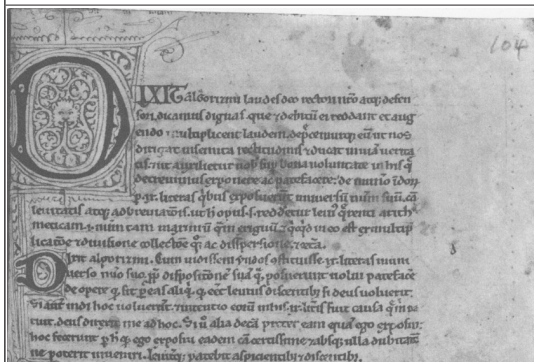 104
DIXIT algorizmi laudes deo rectori nr̃o atq; defen
sori dicamus dignas. que ⁊ debitũ ei reddant ⁊ aug
endo multiplicent laudem. deprecemurq; eum ut nos
dirigat in semita rectitudinis ⁊ ducat in uiam uerita
tis. ⁊ ut auxilietur nob̃ sup̃ bona uoluntate in his q̃
decreuimus exponere ac patefacere. de numero Indorũ
p .ix. literas. quibus exposuerunt uniuersũ num̃ suũ. cã
leuitatis atq; adbreuiationis. ut h̃ opus .s. redderetur leui⁹ q̃renti arith
meticam .i. num̃ tam maximũ q̃m exiguũ. ⁊ q̃cq̃d in eo est ex multipli
catione ⁊ diuisione collectiõe q̃; ac dispersione ⁊ cetera.
Dixit algorizmi. Cum uidissem yndos constituisse .ix. literas in uni
uerso num̃o suo. pp̃ dispositionẽ suã q̃. posuerunt uolui patefacere
de opere q̃. fit p eas aliq̃d. q̃ eẽt leuius discentib; si deus uoluerit.
Si aut̃ indi hoc uoluerũt. ⁊ intentio eorũ in his .ix. lr̃is fuit causa q̃ m̃ po
tuit. deus direxit me ad hoc. Si ũ alia de cã preter eam quã ego exposui.
hoc fecerunt p h̃ q̃ ego exposui eadem cã certissime ⁊ absq; ulla dubitatiõ
ne poterit inueniri. leuit̃q; patebit aspicientib; ⁊ discentib;.